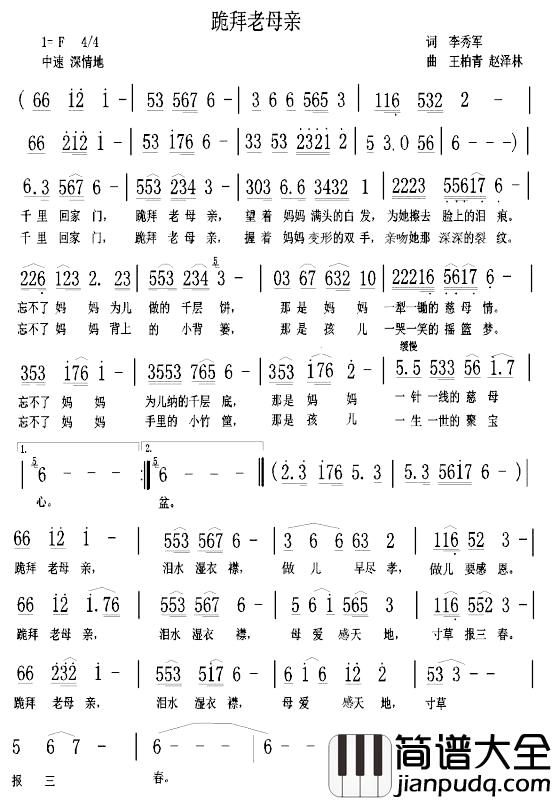 跪拜老母亲
1= F 4/4
词 李秀军
中速 深情地
曲 王柏青 赵泽林
( 66 12 1 - | 53 567 6 - | 3 6 6 565 3 | 116 532 2 - |
66 212 1 - | 53 176 6 - | 33 53 2321 2 | 5 3.0 5 56 | 6 - - ) |
6.3 567 6 - | 553 234 3 - | 303 6.6 3432 1 | 2223 55617 6 - |
千里 回家 门， 跪拜 老母 亲， 望着 妈妈 满头的白 发， 为她擦去 脸上的泪 痕。
千里 回家 门， 跪拜 老母 亲， 握着 妈妈 变形的双 手， 亲吻她那 深深的裂 纹。
226 123 2. 23 | 553 5 234 3 - | 03 67 632 10 | 22216 5617 6 - |
忘不了 妈 妈 为儿 做的 千层 饼， 那 是 妈妈 一犁一锄的 慈母 情。
忘不了 妈 妈 背上 的 小背 篓， 那 是 孩 儿 一哭一笑的 摇篮 梦。
缓慢
353 176 1 - | 3553 765 6 - | 353 176 2 - | 5.5 533 56 1.7 |
忘不了 妈 妈 为儿纳的千层 底， 那是 妈 妈 一针 一线的 慈母
忘不了 妈 妈 手里的 小竹 筐， 那是 孩 儿 一生 一世的 聚宝
1. 2.
5 6 - - - :‖ 5 6 - - - ‖ (2.3 176 5. 3 | 5.3 5617 6 - ) |
心。 盆。
66 12 1 - | 553 567 6 - | 3 6 6 63 2 | 116 52 3 - |
跪拜 老母 亲， 泪水 湿衣 襟， 做 儿 早尽 孝， 做儿 要感 恩。
66 12 1.76 | 553 567 6 - | 5 6 1 565 3 | 116 556 3 - |
跪拜 老母 亲， 泪水 湿衣 襟， 母 爱 感天 地， 寸草 报三 春。
66 232 1 - | 553 517 6 - | 5 6 1 565 3 | 116 2 - - |
跪拜 老母 亲， 泪水 湿衣 襟， 母 爱 感天 地， 寸草
5 6 7 - | 6 - - - | 6 - - - ‖
报 三 春。
简谱大全
jianpudq.com